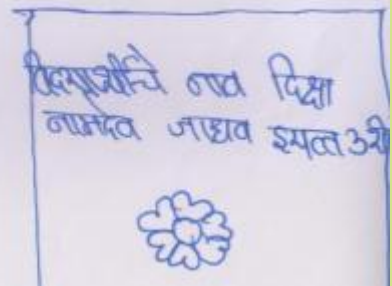 विद्यार्थ्याचे नाव दिक्षा
नामदेव जाधव इयत्ता 3री